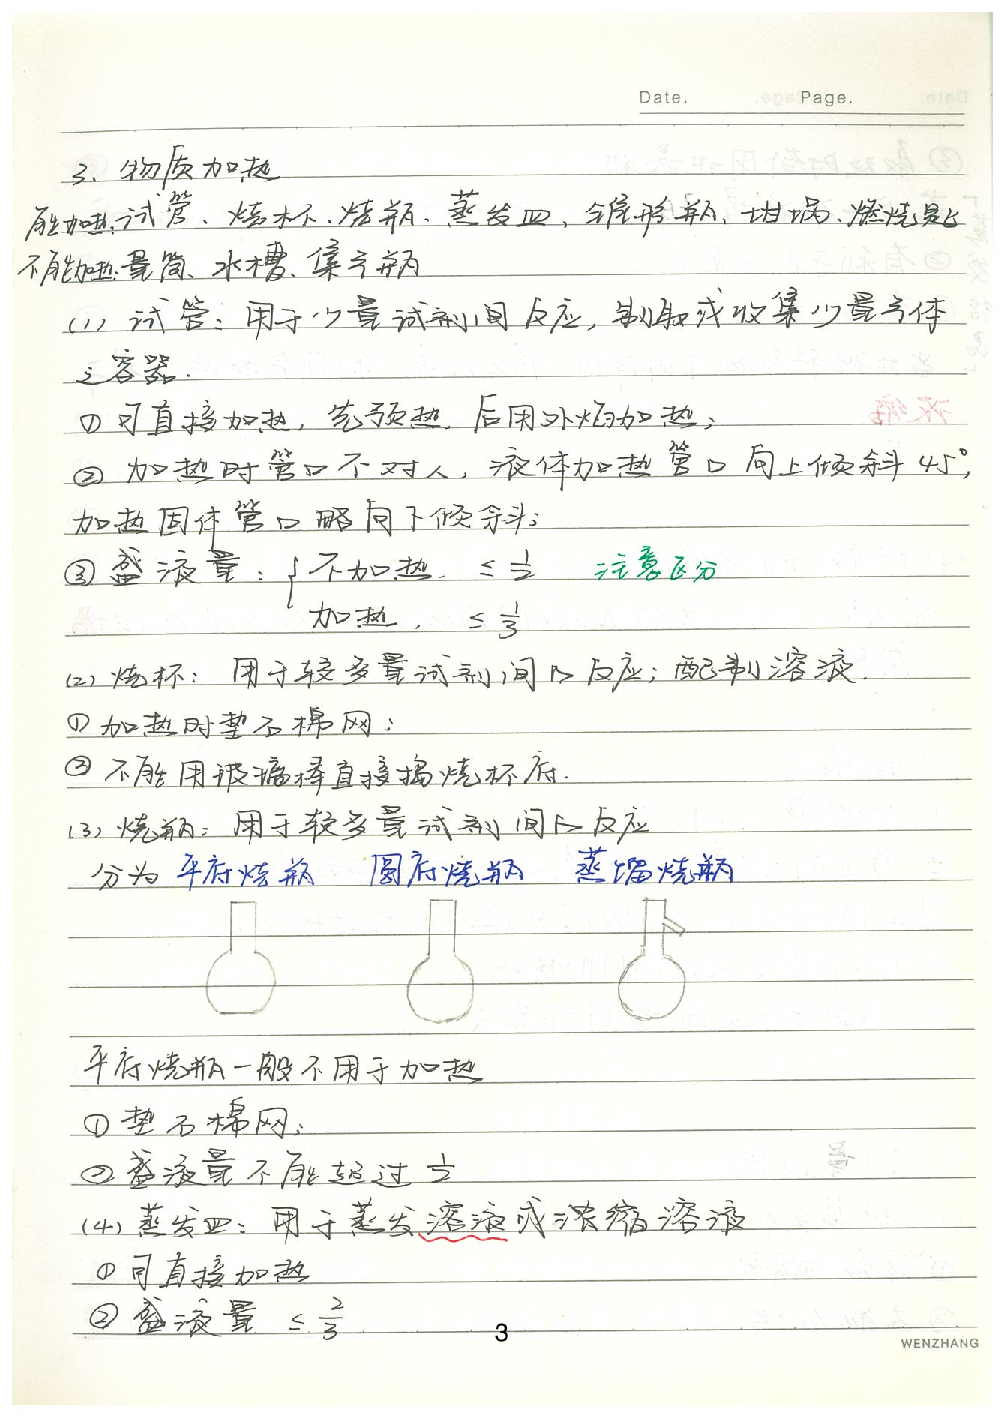 Date. Page.
3、物质加热
能加热:试管、烧杯、烧瓶、蒸发皿、锥形瓶、坩埚、燃烧匙
不能加热:量筒、水槽、集气瓶
(1) 试管：用于少量试剂间反应，制取或收集少量气体
之容器.
① 可直接加热，先预热，后用外焰加热；
② 加热时管口不对人，液体加热管口向上倾斜45°，
加热固体管口略向下倾斜；
③ 盛液量：{ 不加热 ≤ 1/2 注意区分
加热， ≤ 1/3
(2) 烧杯：用于较多量试剂间的反应；配制溶液.
① 加热时垫石棉网；
② 不能用玻璃棒直接捣烧杯底.
(3) 烧瓶：用于较多量试剂间的反应
分为 平底烧瓶 圆底烧瓶 蒸馏烧瓶
平底烧瓶一般不用于加热
① 垫石棉网；
② 盛液量不能超过 1/2
(4) 蒸发皿：用于蒸发溶液或浓缩溶液
① 可直接加热
② 盛液量 ≤ 2/3
3
WENZHANG